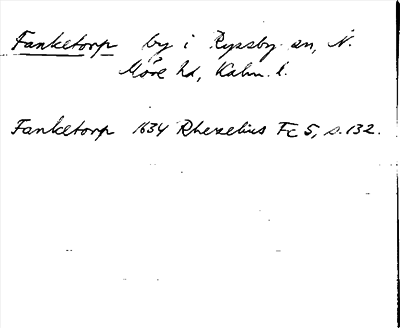 Fanketorp by i Ryssby sn, N.
Möre hd, Kalm. l.
Fanketorp 1634 Rhezelius Fc 5, s. 132.